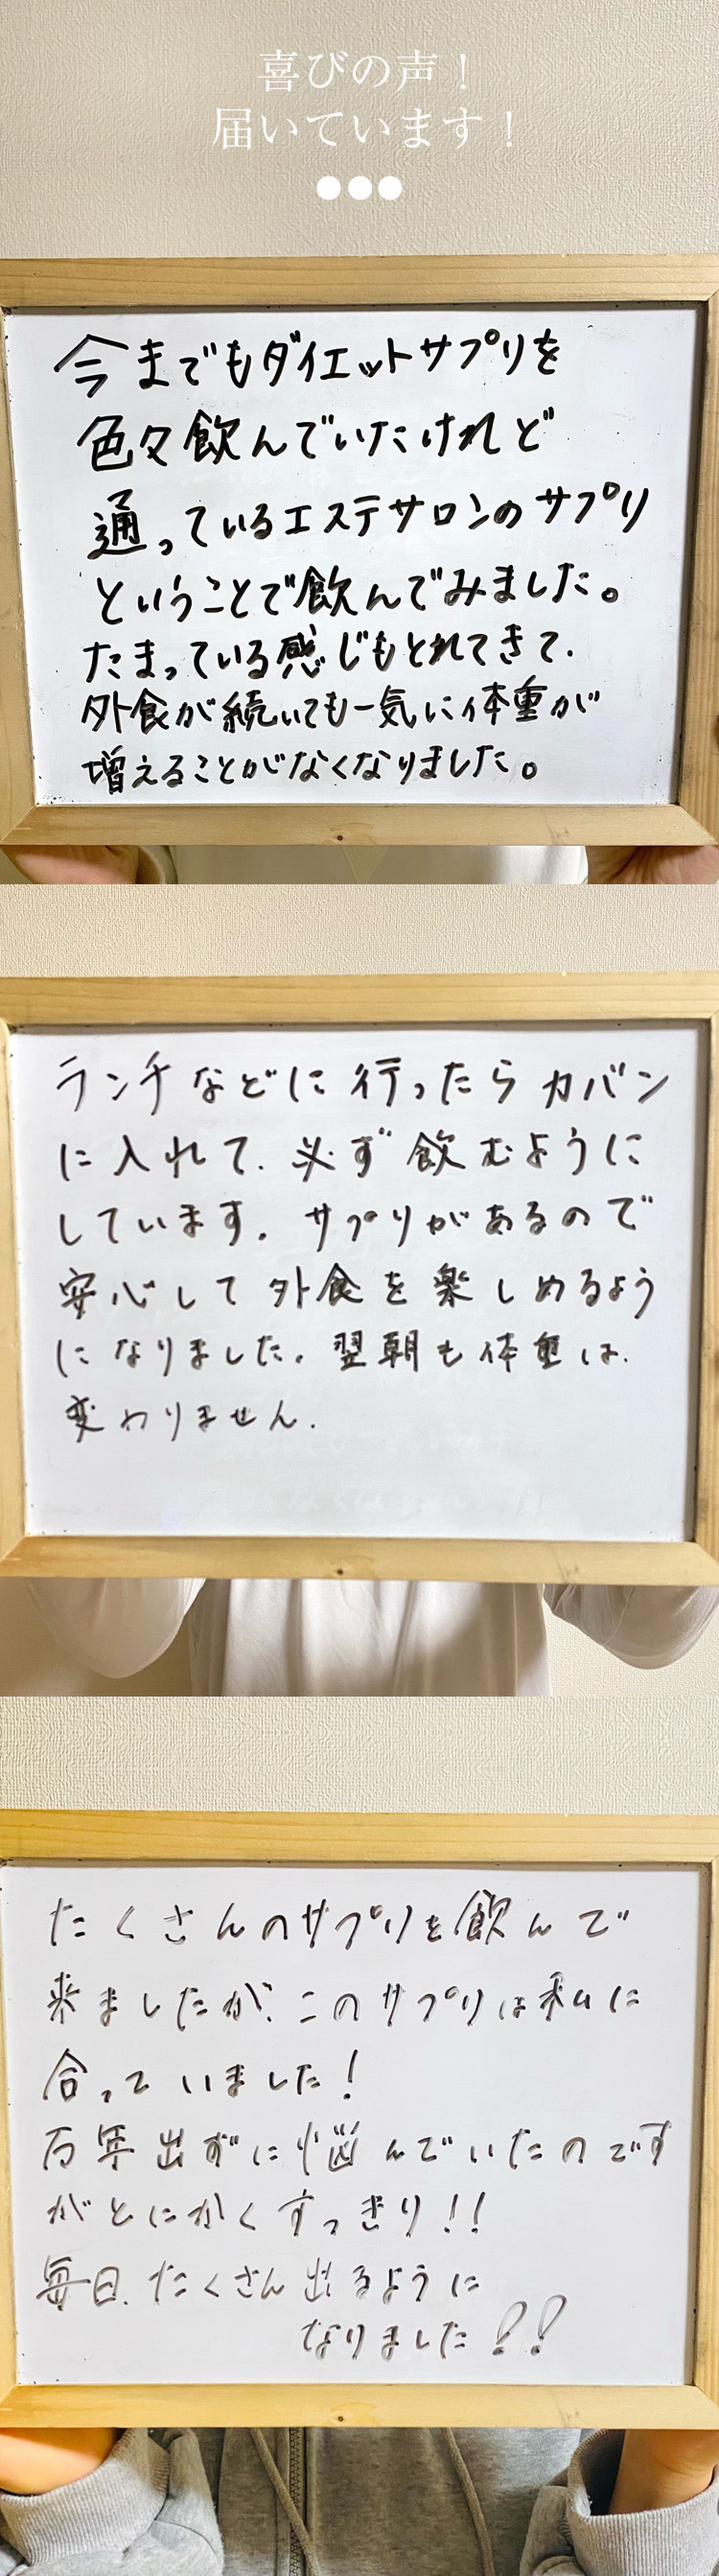 喜びの声！
届いています！
●●●
今までもダイエットサプリを
色々飲んでいたけれど
通っているエステサロンのサプリ
ということで飲んでみました。
たまっている感じもとれてきて、
外食が続いても一気に体重が
増えることがなくなりました。
ランチなどに行ったらカバン
に入れて、必ず飲むように
しています。サプリがあるので
安心して外食を楽しめるよう
になりました。翌朝も体重は、
変わりません。
たくさんのサプリを飲んで
来ましたが、このサプリは私に
合っていました！
万年出ずに悩んでいたのです
がとにかくすっきり！！
毎日、たくさん出るように
なりました！！